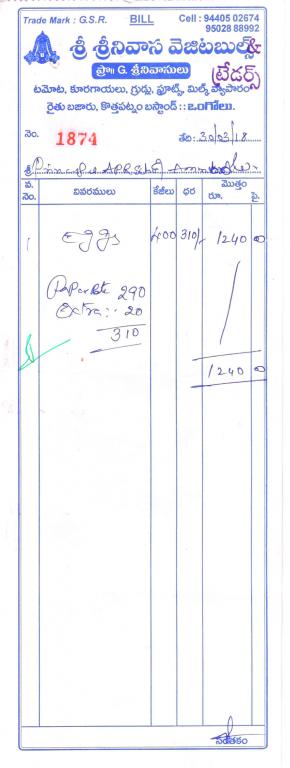 Trade Mark : G.S.R. BILL Cell : 94405 02674
95028 88992
శ్రీ శ్రీనివాస వెజిటబుల్స్ &
ట్రేడర్స్
ప్రొ॥ G. శ్రీనివాసులు
టమోట, కూరగాయలు, గ్రుడ్లు, ఫ్రూట్స్, మిల్క్ వ్యాపారం
రైతు బజారు, కొత్తపట్నం బస్టాండ్ :: ఒంగోలు.
నెం. 1874 తేది: 30/03/18
శ్రీ Principal APRS
వ. నెం. వివరములు కేజీలు ధర మొత్తం రూ. పై.
1 Eggs 400 310/- 1240 00
Paper Rate 290
Extra :- 20
310
1240 00
సంతకం